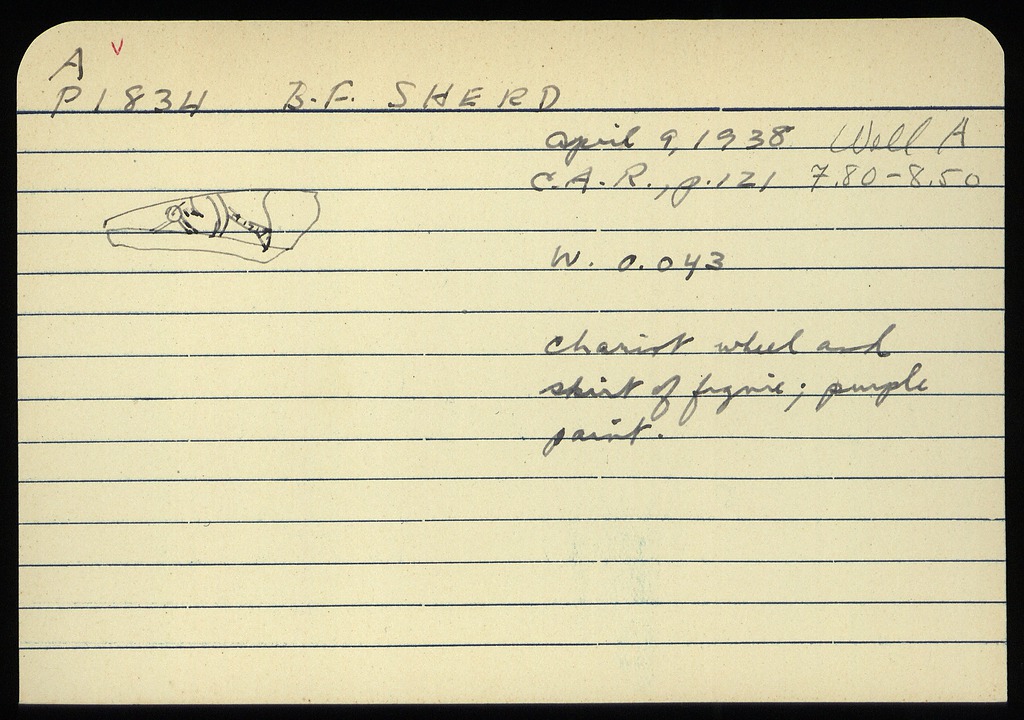 A v
P1834 B.F. SHERD
April 9, 1938 Well A
C.A.R., p.121 7.80-8.50
W. 0.043
chariot wheel and
skirt of figure; purple
paint.